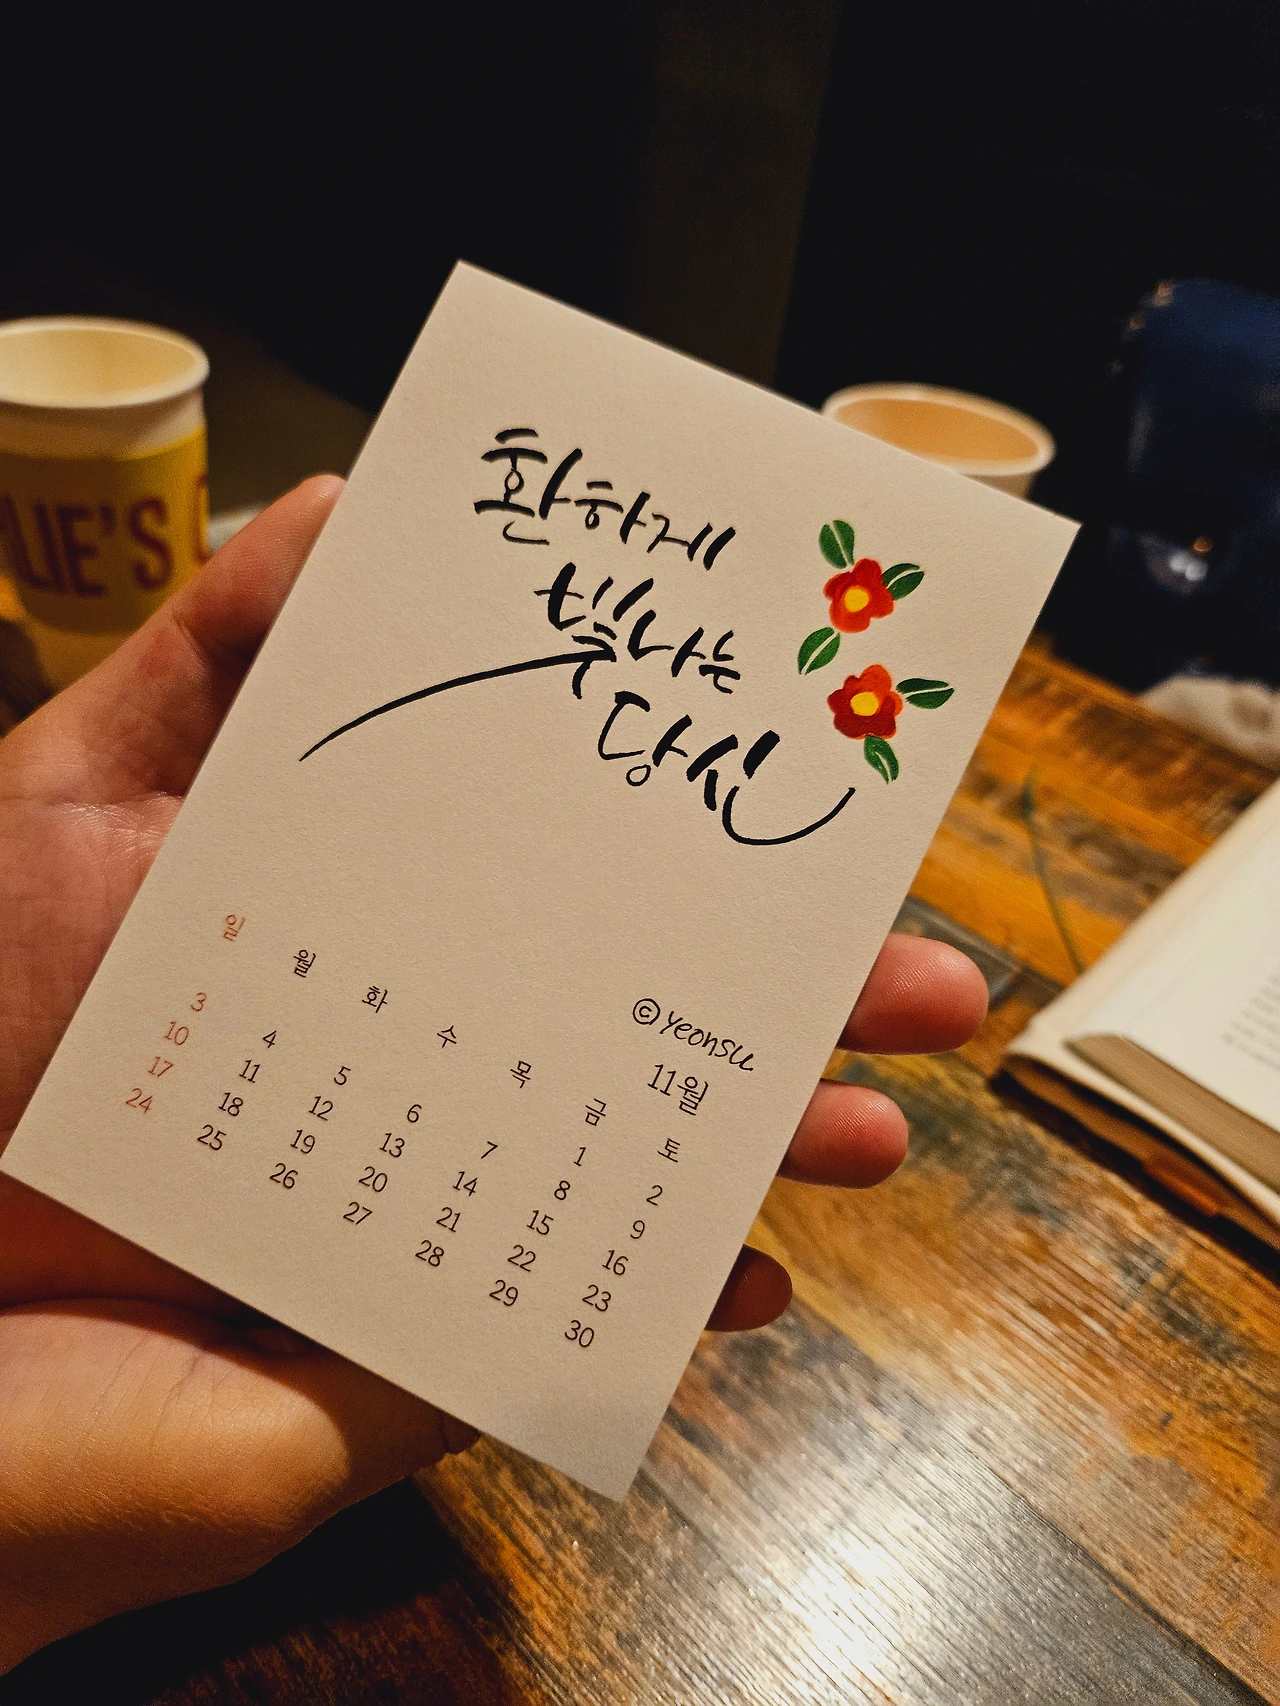 환하게
빛나는
당신
©yeonsu
11월
일 월 화 수 목 금 토
1 2
3 4 5 6 7 8 9
10 11 12 13 14 15 16
17 18 19 20 21 22 23
24 25 26 27 28 29 30
LIE'S